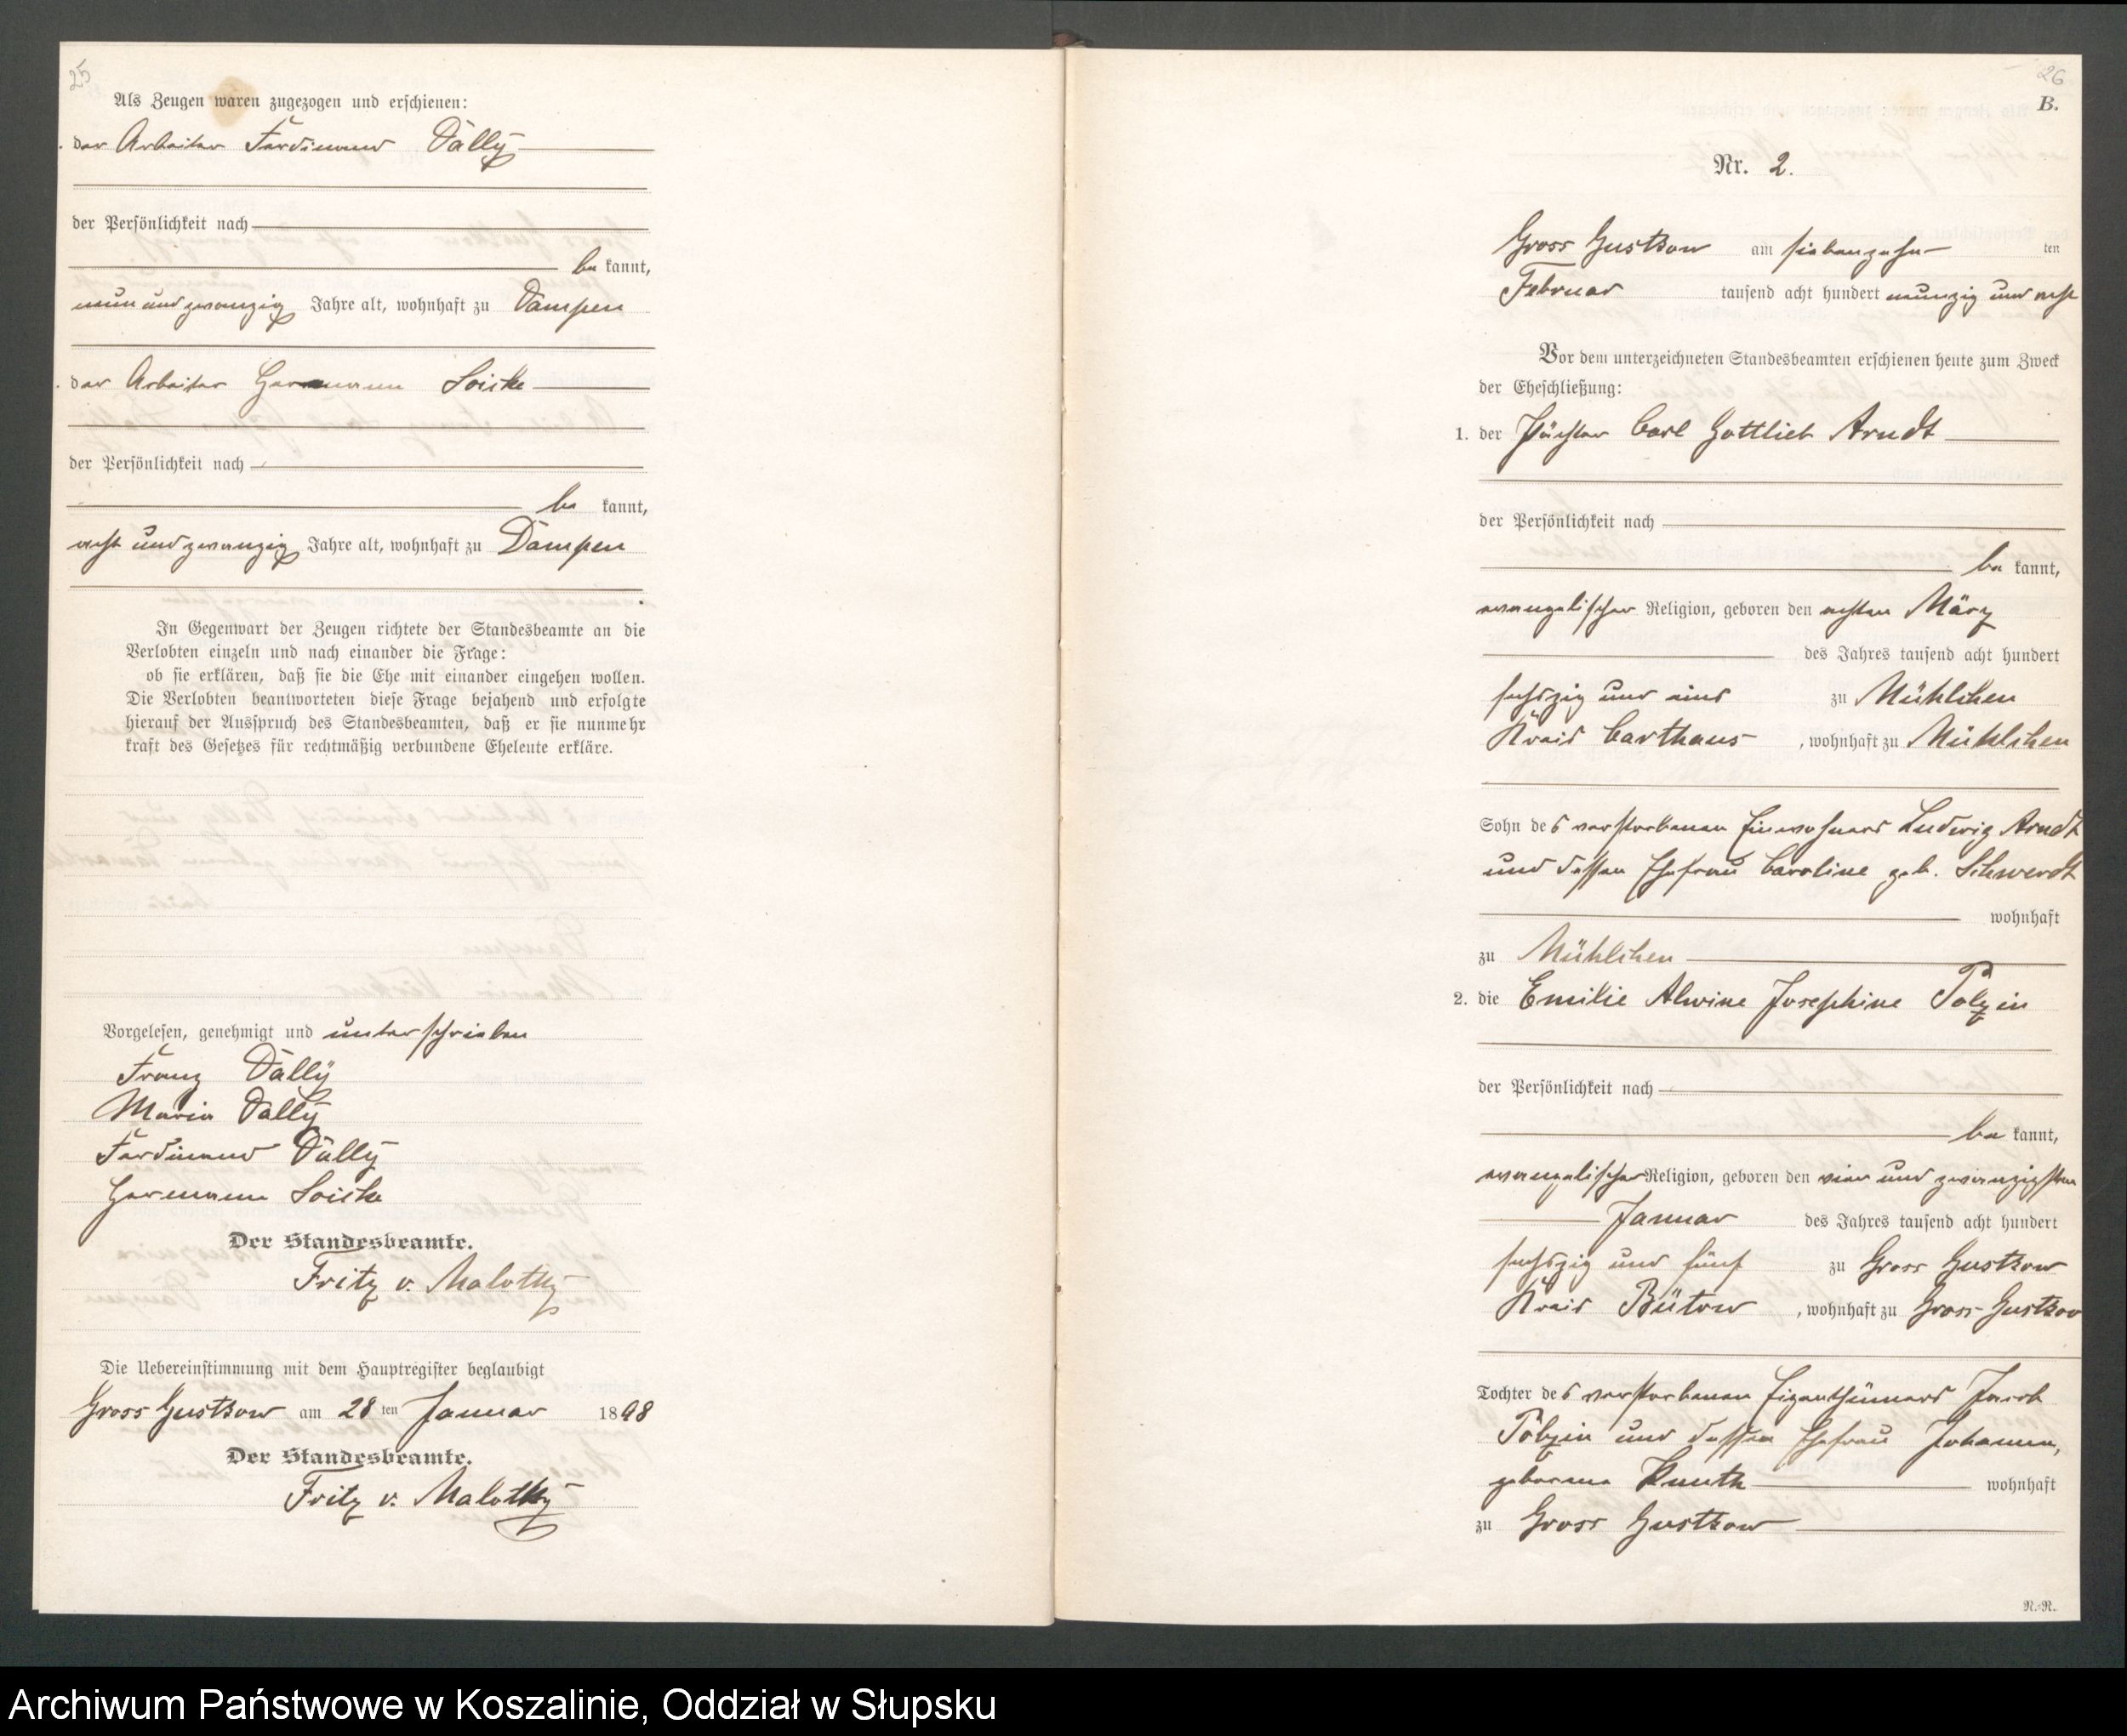 25
Als Zeugen waren zugezogen und erschienen:
der Arbeiter Ferdinand Dally
der Persönlichkeit nach
be kannt,
neun und zwanzig Jahre alt, wohnhaft zu Dampen
der Arbeiter Hermann Loiske
der Persönlichkeit nach
be kannt,
acht und zwanzig Jahre alt, wohnhaft zu Dampen
In Gegenwart der Zeugen richtete der Standesbeamte an die
Verlobten einzeln und nach einander die Frage:
ob sie erklären, daß sie die Ehe mit einander eingehen wollen.
Die Verlobten beantworteten diese Frage bejahend und erfolgte
hierauf der Ausspruch des Standesbeamten, daß er sie nunmehr
kraft des Gesetzes für rechtmäßig verbundene Eheleute erkläre.
Vorgelesen, genehmigt und unterschrieben
Franz Dally
Maria Dally
Ferdinand Dally
Hermann Loiske
Der Standesbeamte.
Fritz v. Malottky
Die Uebereinstimmung mit dem Hauptregister beglaubigt
Gross Gustkow am 28 ten Januar 1898
Der Standesbeamte.
Fritz v. Malottky
26
B.
Nr. 2.
Gross Gustkow am siebenzehn ten
Februar tausend acht hundert neunzig und acht
Vor dem unterzeichneten Standesbeamten erschienen heute zum Zweck
der Eheschließung:
1. der Pächter Carl Gottlieb Arndt
der Persönlichkeit nach
be kannt,
evangelischer Religion, geboren den achten März
des Jahres tausend acht hundert
sechszig und eins zu Mühlchen
Kreis Carthaus, wohnhaft zu Mühlchen
Sohn des verstorbenen Einwohners Ludwig Arndt
und dessen Ehefrau Caroline geb. Schwerdt
wohnhaft
zu Mühlchen
2. die Emilie Alwine Josephine Polzin
der Persönlichkeit nach
be kannt,
evangelischer Religion, geboren den vier und zwanzigsten
Januar des Jahres tausend acht hundert
sechszig und fünf zu Gross Gustkow
Kreis Bütow, wohnhaft zu Gross Gustkow
Tochter des verstorbenen Eigenthümers Jacob
Polzin und dessen Ehefrau Johanna,
geborene Knuth wohnhaft
zu Gross Gustkow
N.-R.
Archiwum Państwowe w Koszalinie, Oddział w Słupsku